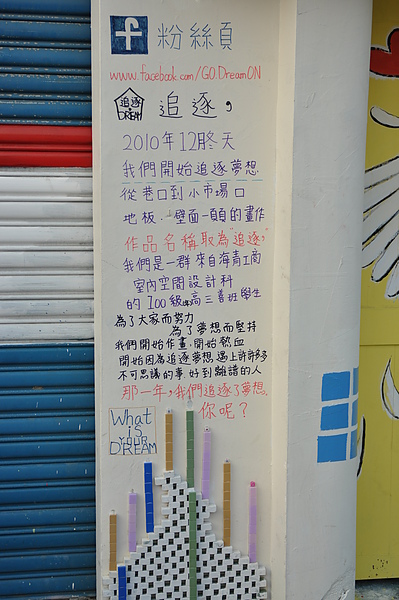 f 粉絲頁
www.facebook.com/GO.DreamON
追逐 DREAM 追逐,
2010年12月冬天
我們開始追逐夢想
從巷口到小市場口
地板.壁面一顆顆的畫作
作品名稱取為"追逐,"
我們是一群來自海青工商
室內空間設計科
的100級高三善班學生
為了大家而努力
為了夢想而堅持
我們開始作畫.開始熱血
開始因為追逐夢想,遇上許許多多
不可思議的事.好到離譜的人
那一年,我們追逐了夢想.
你呢?
What
is
YOUR
DREAM